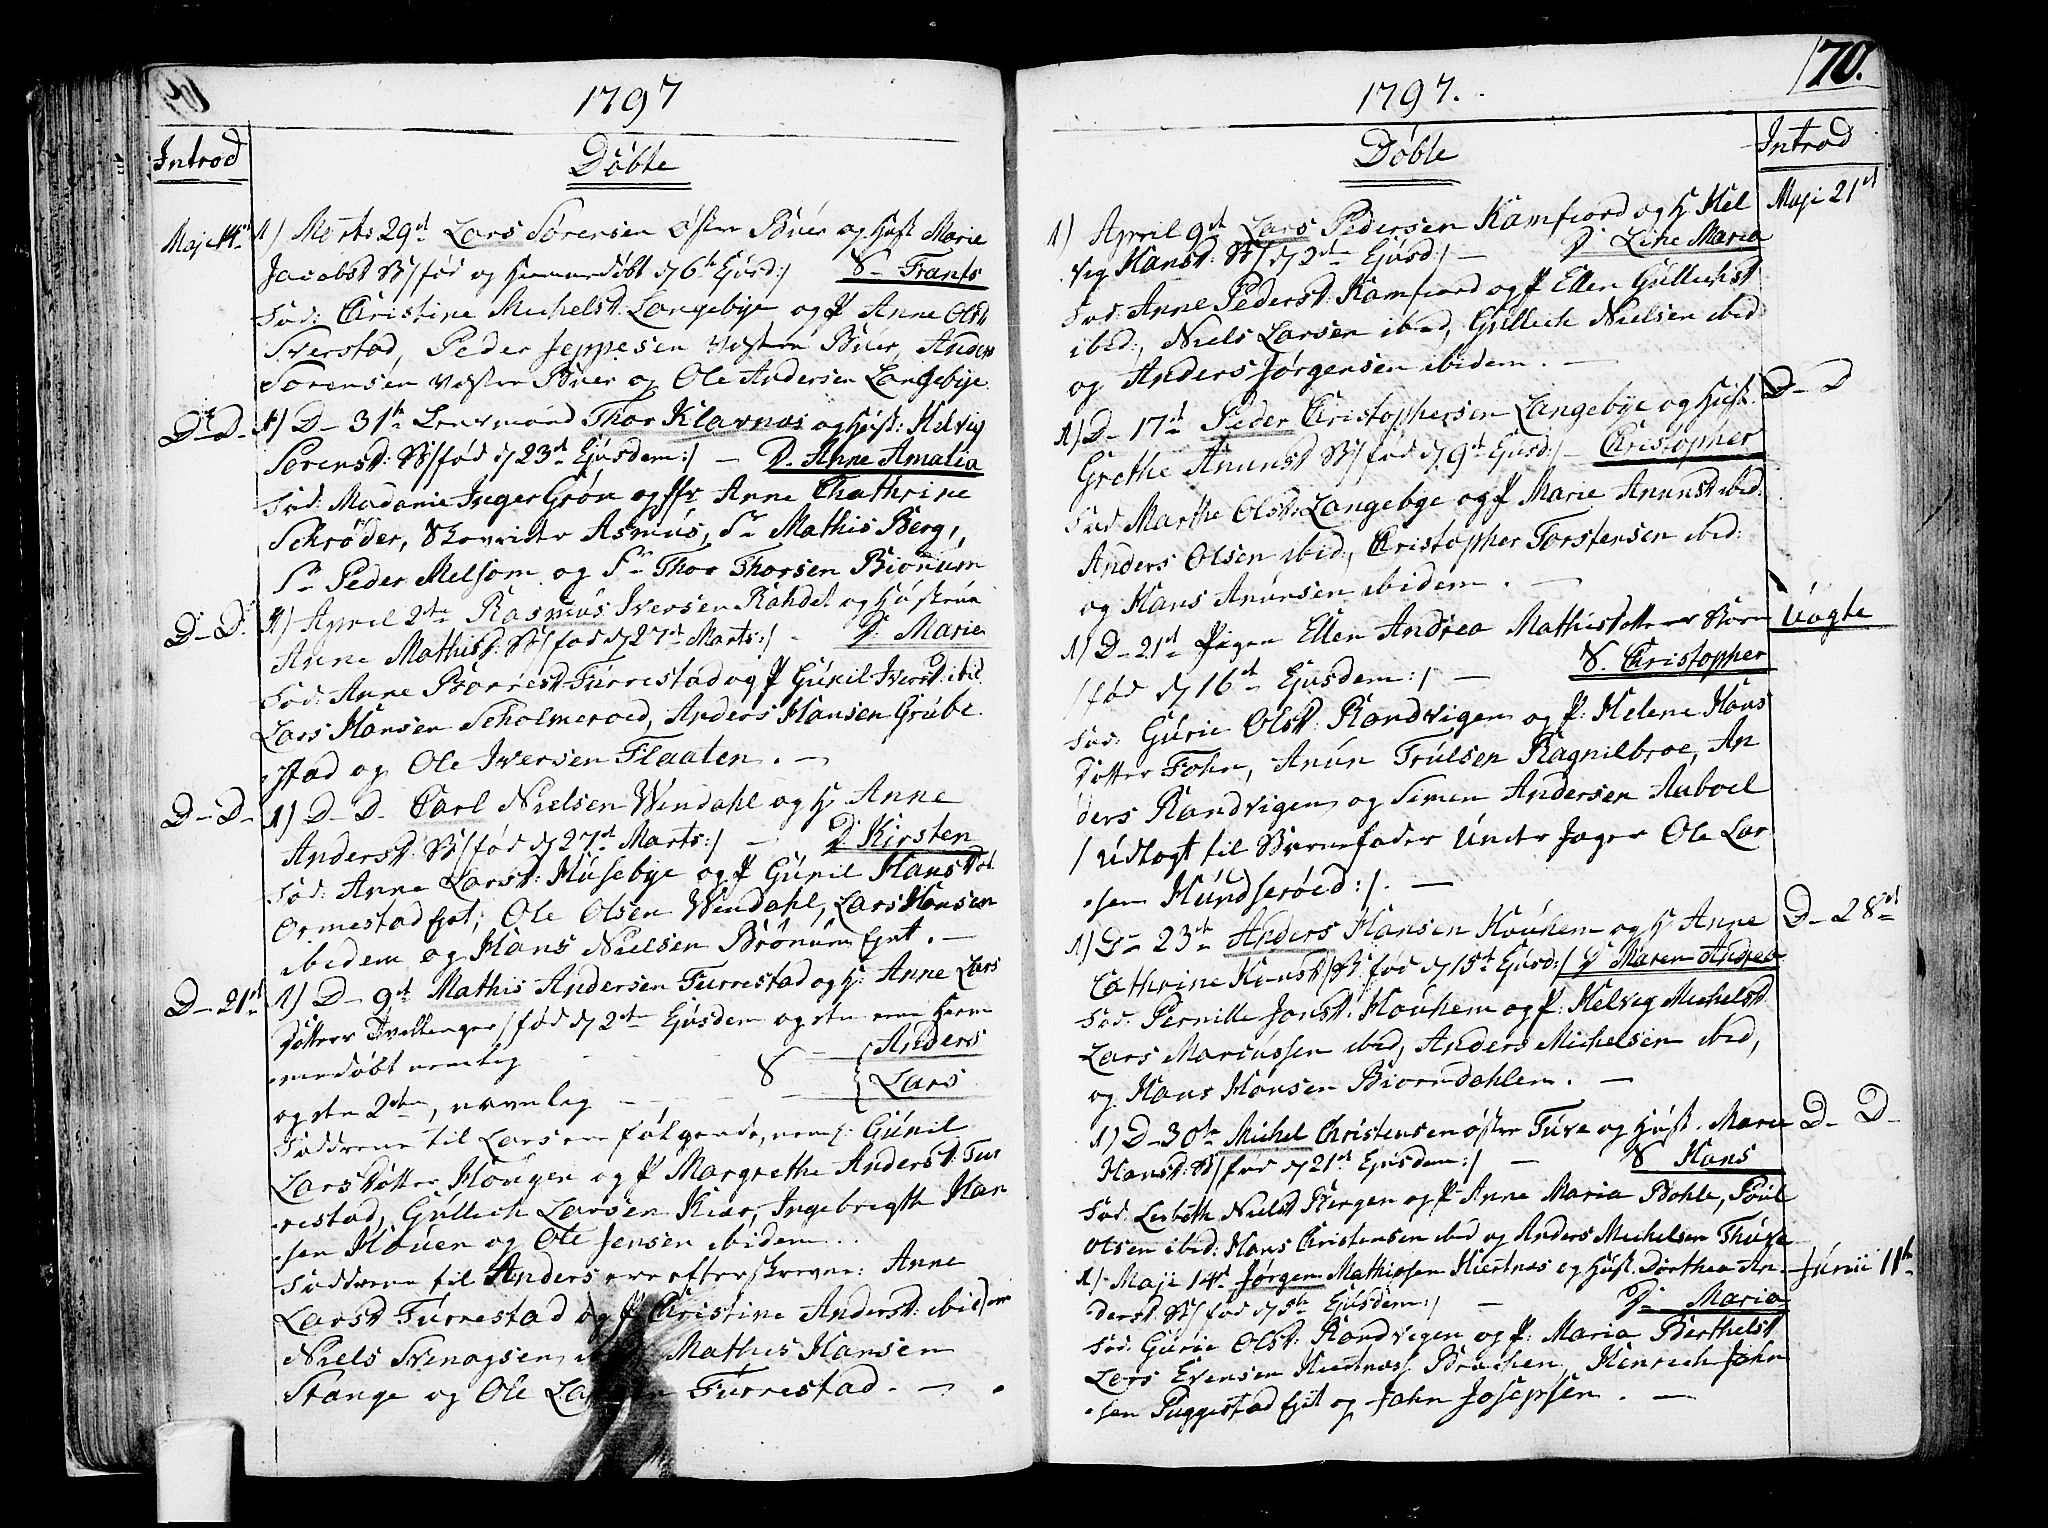 1797
Introd
Döbte
Maji 14de 1) Marts 29de Lars Sörensen öster Buer og Hust Marie
Jacobsd: B/ fød og hiemmedöbt d 6te Ejusd:/ S- Frants
Fad: Christine Michelsd: Langebye og P Anne Olsd
Sverstad, Peder Jeppesen vester Buer, Anders
Sorensen vester Buer og Ole Andersen Langebye
D-D- 1) D- 31te Lensmand Thor Klavnæs og Hust: Helvig
Sorensd: B/ fød d 23de Ejusdem:/ - D. Anne Amalia
Fad: Madame Inger Grön og Jfr Anne Chathrine
Schröder, Skovrider Asmus, Sr Mathis Berg,
Sr Peder Melsom og Sr Thor Thorsen Bionum
D-D- 1) April 2den Rasmus Iversen Rahdel og Hustrue
Anne Mathisd: B/ fød d 27de Marts:/ - D. Marie
Fad: Anne Borresd Furrestad og P Gunil Iversd: ibid.
Lars Hansen Scholmeroed, Anders Hansen Grube
stad og Ole Iversen Flaaten. -
D-D- 1) D- D- Carl Nielsen Wendahl og H Anne
Andersd: B/ fød d 27de Marts:/ - D. Kirsten
Fad: Anne Larsd: Husebye og P Gunil Hansdat
Ormestad Ejet; Ole Olsen Wendahl, Lars Hansen
ibidem og Hans Nielsen Brönum Ejet. -
D- 21de 1) D- 9de Mathis Andersen Furrestad og H: Anne Lars
Dötters Tvillinger/ fød d 2den Ejusdem og den ene hiem
medöbt nemlig - - - Anders
S
og den 2den, navnlig - - - Lars
Fadderne til Lars ere følgende, neml: Gunil
Larsdötter Hougen og P Margrethe Andersd: Fur
restad, Gullich Larsen Kiær, Ingebrigth Han
sen Houen og Ole Jensen ibidem..
Fadderne til Anders ere efterskrevne: Anne
Larsd Furrestad og P Christine Andersd: ibidem
Niels Svenogsen Mathis Hansen
Stange og Ole Larsen Furrestad. -
170.
1797.
Introd
Döbte
Maji 21de
1) April 9de Lars Pedersen Kamfiord og H Hel
vig Hansd: B/ d 2den Ejusd:/ - D. Line Maria
Fad: Anne Pedersd: Kamfiord og P Ellen Gullichsd
ibid:, Niels Larsen ibid, Gullich Nielsen ibid
og Anders Jörgensen ibidem. -
1) D- 17de Peder Christophersen Langebye og Hust. D- D
Grethe Anunsd B/ fød d 9de Ejusd:/ - Christopher
Fad: Marthe Olsd: Langebye og P Marie Anunsd ibid:
Anders Olsen ibid:, Christopher Torstensen ibid:
og Hans Anunsen ibidem. -
1) D- 21de Pigen Ellen Andrea Mathisdatters Barn Uægte
/ fød d 16de Ejusdem:/ - S. Christopher
Fad: Gurie Olsd: Randvigen og P: Helene Hans
Dötter Fohn, Anun Trulsen Ragnilbroe, An
ders Randvigen og Simen Andersen Auboel
/ Udlagt til Barnefader Under Jager Ole Lar
sen Hundseröed:/. -
1) D- 23de Anders Hansen Houhem og H Anne D- 28de
Cathrine Hansd/B. fød d 15de Ejusd:/ D Maren Andrea
Fad: Pernille Jonsd: Houhem og P: Helvig Michelsd
Lars Marcussen ibid, Anders Michelsen ibid,
og Hans Hansen Biorndahlen. -
1) D- 30te Michel Christensen öster Tuve og Hust. Maria D- D-
Hansd: B/ fød d 21de Ejusdem:/ - S Hans
Fad: Lisbeth Nielsd Bergen og P Anne Maria Bohle, Poul
Olsen ibid: Hans Christensen ibid og Anders Michelsen Thuve
1) Maji 14de Jörgen Mathissen Hiertnæs og Hust. Dorthea An- Junii 11te
dersd: B/ fød d 5te Ejusdem:/ - D. Maria
Fad: Gurie Olsd: Randvigen og P. Maria Berthelsd
Lars Evensen Hiertnæs Brachen, Henrich John
sen Puggestad Ejet og John Josepsen. -